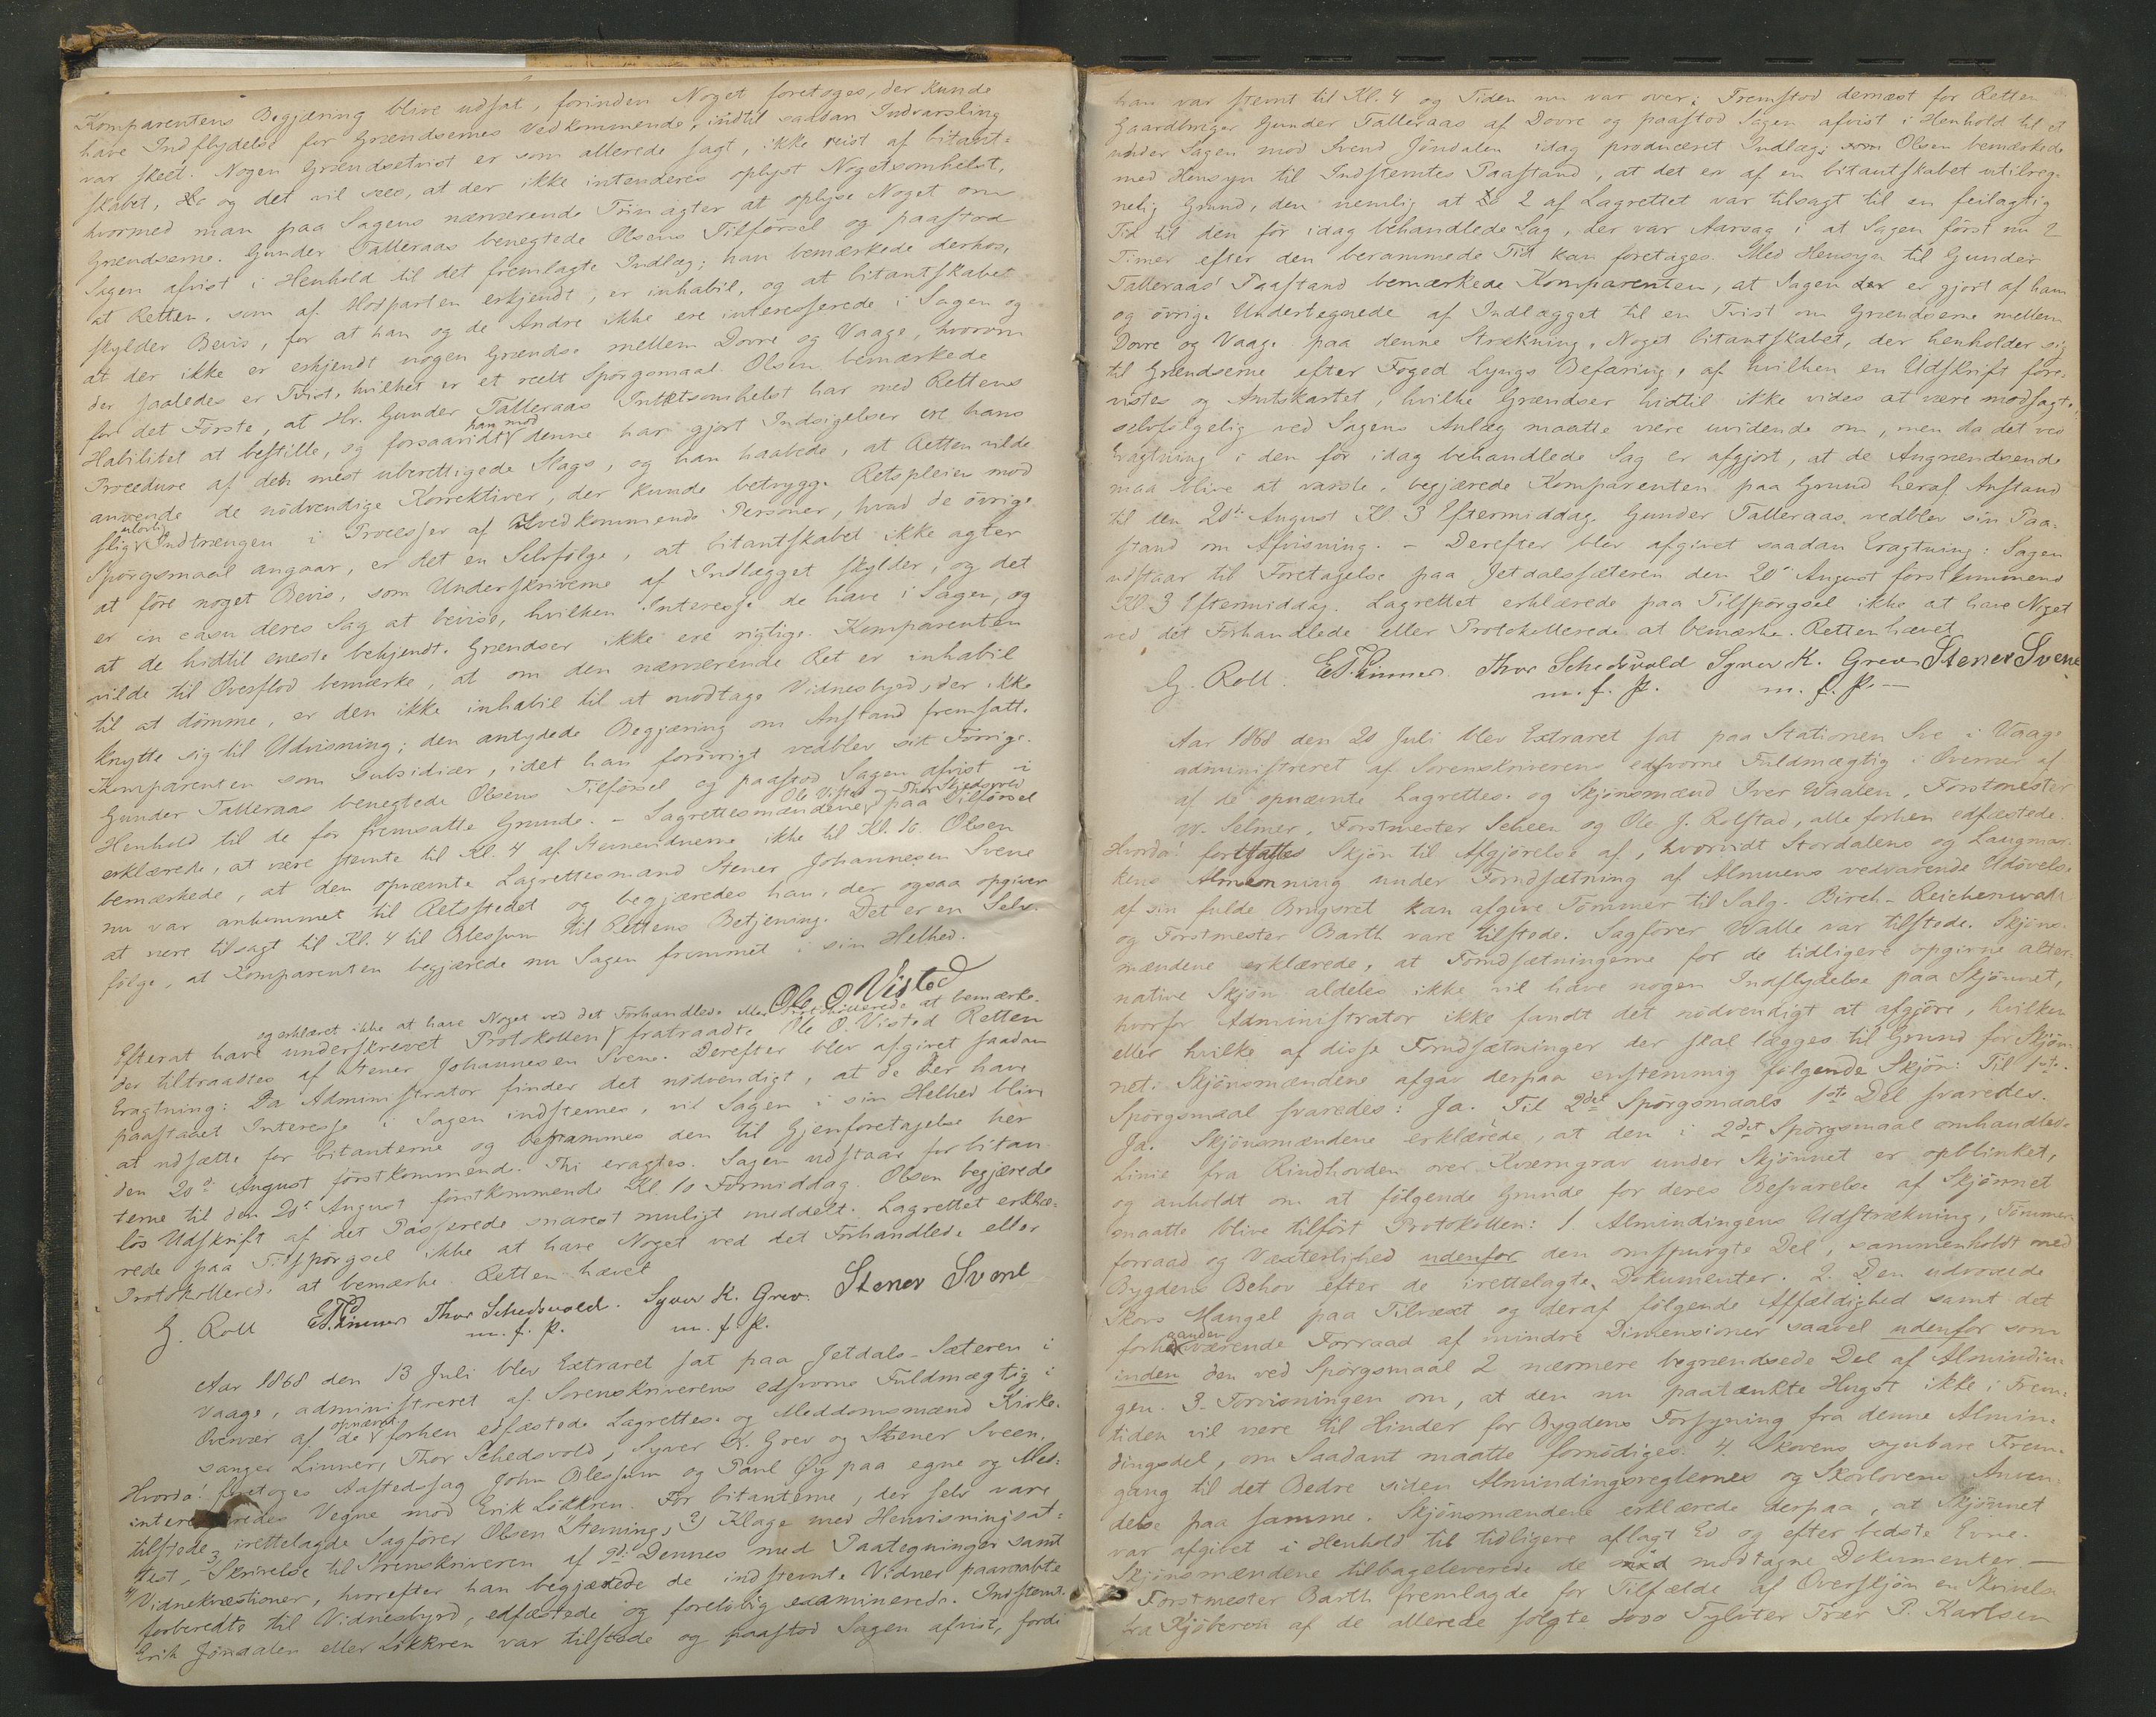 Komparentens Begjæring blive udsat, forinden Noget foretoges, der kunde
have Indflydelse for Grændsernes Vedkommende, indtil saadan Indvarsling
var skeet. Nogen Grændsetvist er som allerede sagt, ikke reist af Citant-
skabet, og det vil sees, at der ikke intenderes oplyst Nogetsomhelst,
hvormed man paa Sagens nærværende Trin agter at oplyse Noget om
Grændserne. Gunder Talleraas benegtede Olsens Tilförsel og paastod
Sagen afvist i Henhold til det fremlagte Indlæg; han bemærkede derhos,
at Retten, som af Modparten erkjendt, er inhabil, og at Citantskabet
skylder Bevis, for at han og de Andre ikke ere interesserede i Sagen og
at der ikke er erkjendt nogen Grændse mellem Dovre og Vaage, hvorom
der saaledes er Tvist, hvilket er et reelt Spörgsmaal. Olsen bemærkede
for det Förste, at Hr. Gunder Talleraas Intetsomhelst har med Rettens
Habilitet at bestille, og forsaavidt han mod denne har gjort Indsigelser ere hans
Procedure af den mest uberettigede Slags, og han haabede, at Retten vilde
anvende de nödvendige Korrektiver, der kunde betrygge Retspleien mod
slig ulovlig Indtrængen i Processer af Uvedkommende Personer, hvad de övrige
Spörgsmaal angaar, er det en Selvfölge, at Citantskabet ikke agter
at före noget Bevis, som Underskriverne af Indlægget skylder, og det
er in casu deres Sag at bevise, hvilken Interesse de have i Sagen, og
at de hidtil eneste bekjendte Grændser ikke ere rigtige. Komparenten
vilde til Overflod bemærke, at om den nærværende Ret er inhabil
til at dömme, er den ikke inhabil til at modtage Vidnesbyrd, der ikke
knytte sig til Udvisning; den antydede Begjæring om Anstand fremsatte
Komparenten som subsidiær, idet han forövrigt vedblev sit Forrige.
Gunder Talleraas benegtede Olsens Tilförsel og paastod Sagen afvist i
Henhold til de för fremsatte Grunde. – Lagrettesmændene Ole Visted og Thor Skjedsvold paa Tilförsel
erklærede, at være stemte til Kl. 4 af Stevnevidnerne ikke til Kl. 10. Olsen
bemærkede, at den opnævnte Lagrettesmand Stener Johannesen Svene
nu var ankommet til Retsstedet og begjæredes han, der ogsaa opgiver
at være tilsagt til Kl. 4 til Olessum til Rettens Betjening. Det er en Selv-
fölge, at Komparenten begjærede nu Sagen fremmet i sin Helhed.
Ole O. Visted
Efterat have underskrevet Protokollen og erklæret ikke at have Noget ved det Forhandlede eller Protokollerede at bemærke. fratraadte Ole O. Visted Retten
der tiltraadtes af Stener Johannesen Svene. Derefter blev afgivet saadan
Eragtning: Da Administrator finder det nödvendigt, at de der have
paastaaet Interesse i Sagen indstevnes, vil Sagen i sin Helhed blive
at udsætte for Citanterne og berammes den til Gjenforetagelse her
den 20de August förstkommende. Thi eragtes: Sagen udstaar for Citan-
terne til den 20de August förstkommende Kl. 10 Formiddag. Olsen begjærede
lös Udskrift af det Passerede snarest muligt meddelt. Lagrettet erklæ-
rede paa Tilspörgsel ikke at have Noget ved det Forhandlede eller
Protokollerede at bemærke. Retten hævet
G. Roll E. Linner Thor Schedsvold. Syver K. Grev. Stener Svene
m. f. P. m. f. P.
Aar 1868 den 13 Juli blev Extraret sat paa Jetdals-Sæteren i
Vaage, administreret af Sorenskriverens edsvorne Fuldmægtig i
Overvær af de opnævnte forhen edfæstede Lagrettes- og Meddomsmænd Kirke-
sanger Linner, Thor Schedsvold, Syver K. Grev og Stener Sveen.
Hvorda! foretoges Aastedssag John Olessum og Paul Öy paa egne og Med-
interesseredes Vegne mod Erik Lökkren. For Citanterne, der selv vare
tilstede, irettelagde Sagförer Olsen 1) Stevning, 2) Klage med Henvisningsat-
test, 3) Skrivelse til Sorenskriveren af 9de Dennes med Paategninger samt
4) Vidnekvæstioner, hvorefter han begjærede de indstevnte Vidner paaraabte
forberedte til Vidnesbyrd, edfæstede og foreløbig examinerede. Indstevnte
Erik Jöndalen eller Lökkren var tilstede og paastod Sagen afvist, fordi
han var stevnt til Kl. 4 og Tiden nu var over; Fremstod dernæst for Retten
Gaardbruger Gunder Talleraas af Dovre og paastod Sagen afvist i Henhold til et
under Sagen mod Svend Jöndalen idag produceret Indlæg; som Olsen bemærkede
med Hensyn til Indstevntes Paastand, at det er af en Citantskabet utilreg-
nelig Grund, den nemlig at 2 af Lagrettet var tilsagt til en feilagtig
Tid til den för idag behandlede Sag, der var Aarsag i at Sagen först nu 2
Timer efter den berammede Tid kan foretages. Med Hensyn til Gunder
Talleraas' Paastand bemærkede Komparenten, at Sagen der er gjort af ham
og övrige Undertegnede af Indlægget til en Tvist om Grændserne mellem
Dovre og Vaage paa denne Strækning, Noget Citantskabet, der henholder sig
til Grændserne efter Foged Lyngs Befaring, af hvilken en Udskrift fore-
vistes og Amtskartet, hvilke Grændser hidtil ikke vides at være modsagte,
selvfölgelig ved Sagens Anlæg maatte være uvidende om, men da det ved
Eragtning i den för idag behandlede Sag er afgjort, at de Angrændsende
maa blive at varsle, begjærede Komparenten paa Grund heraf Anstand
til den 20de August Kl. 3 Eftermiddag. Gunder Talleraas vedblev sin Paa-
stand om Afvisning. – Derefter blev afgivet saadan Eragtning: Sagen
udstaar til Foretagelse paa Jetdalssæteren den 20de August förstkommende
Kl. 3 Eftermiddag. Lagrettet erklærede paa Tilspörgsel ikke at have Noget
ved det Forhandlede eller Protokollerede at bemærke. Retten hævet
G. Roll. E. Linner. Thor Schedsvold Syver K. Grev Stener Svene
m. f. P. m. f. P. –
Aar 1868 den 20 Juli blev Extraret sat paa Stationen Sve i Vaage
administreret af Sorenskriverens edsvorne Fuldmægtig i Overvær af
af de opnævnte Lagrettes- og Skjönsmænd Iver Waalen, Forstmester
W. Selmer, Forstmester Scheen og Ole J. Rolstad, alle forhen edfæstede.
Hvorda! fortsattes Skjön til Afgjörelse af, hvorvidt Stordalens og Langmor-
kens Almenning under Forudsætning af Almuens vedvarende Udövelse
af sin fulde Brugsret kan afgive Tömmer til Salg. Birch-Reichenwald
og Forstmester Barth vare tilstede. Sagförer Walle var tilstede. Skjöns-
mændene erklærede, at Forudsætningerne for de tidligere opgivne alter-
native Skjön aldeles ikke vil have nogen Indflydelse paa Skjönnet,
hvorfor Administrator ikke fandt det nödvendigt at afgjöre, hvilken
eller hvilke af disse Forudsætninger der skal lægges til Grund for Skjön-
net. Skjönsmændene afgav derpaa enstemmig fölgende Skjön: Til 1ste
Spörgsmaal svaredes: Ja. Til 2det Spörgsmaals 1ste Del svaredes.
Ja. Skjönsmændene erklærede, at den i 2det Spörgsmaal omhandlede
Linie fra Rindhovden over Kværngrav under Skjönnet er opblinket,
og anholdt om at fölgende Grunde for deres Besvarelse af Skjönnet
maatte blive tilfört Protokollen: 1. Almindingens Udstrækning, Tömmer-
forraad og Væxterlighed udenfor den omspurgte Del, sammenholdt med
Bygdens Behov efter de irettelagte Dokumenter. 2. Den udvoxede
Skovs Mangel paa Tilvæxt og deraf fölgende Affældighed samt det
forhaandenværende Forraad af mindre Dimensioner saavel udenfor som
inden den ved Spörgsmaal 2 nærmere begrændsede Del af Almindin-
gen. 3. Forvisningen om, at den nu paatænkte Hugst ikke i Frem-
tiden vil være til Hinder for Bygdens Forsyning fra denne Almin-
dingsdel, om Saadant maatte fornödiges. 4. Skovens synbare Frem-
gang til det Bedre siden Almindingsreglernes og Skovlovens Anven-
delse paa samme. Skjönsmændene erklærede derpaa, at Skjönnet
var afgivet i Henhold til tidligere aflagt Ed og efter bedste Evne.
Skjönsmændene tilbageleverede de modtagne Dokumenter. –
Forstmester Barth fremlagde for Tilfælde af Overskjön en Skrivelse
fra Kjöberen af de allerede solgte 1000 Tylvter Trær P. Karlsen